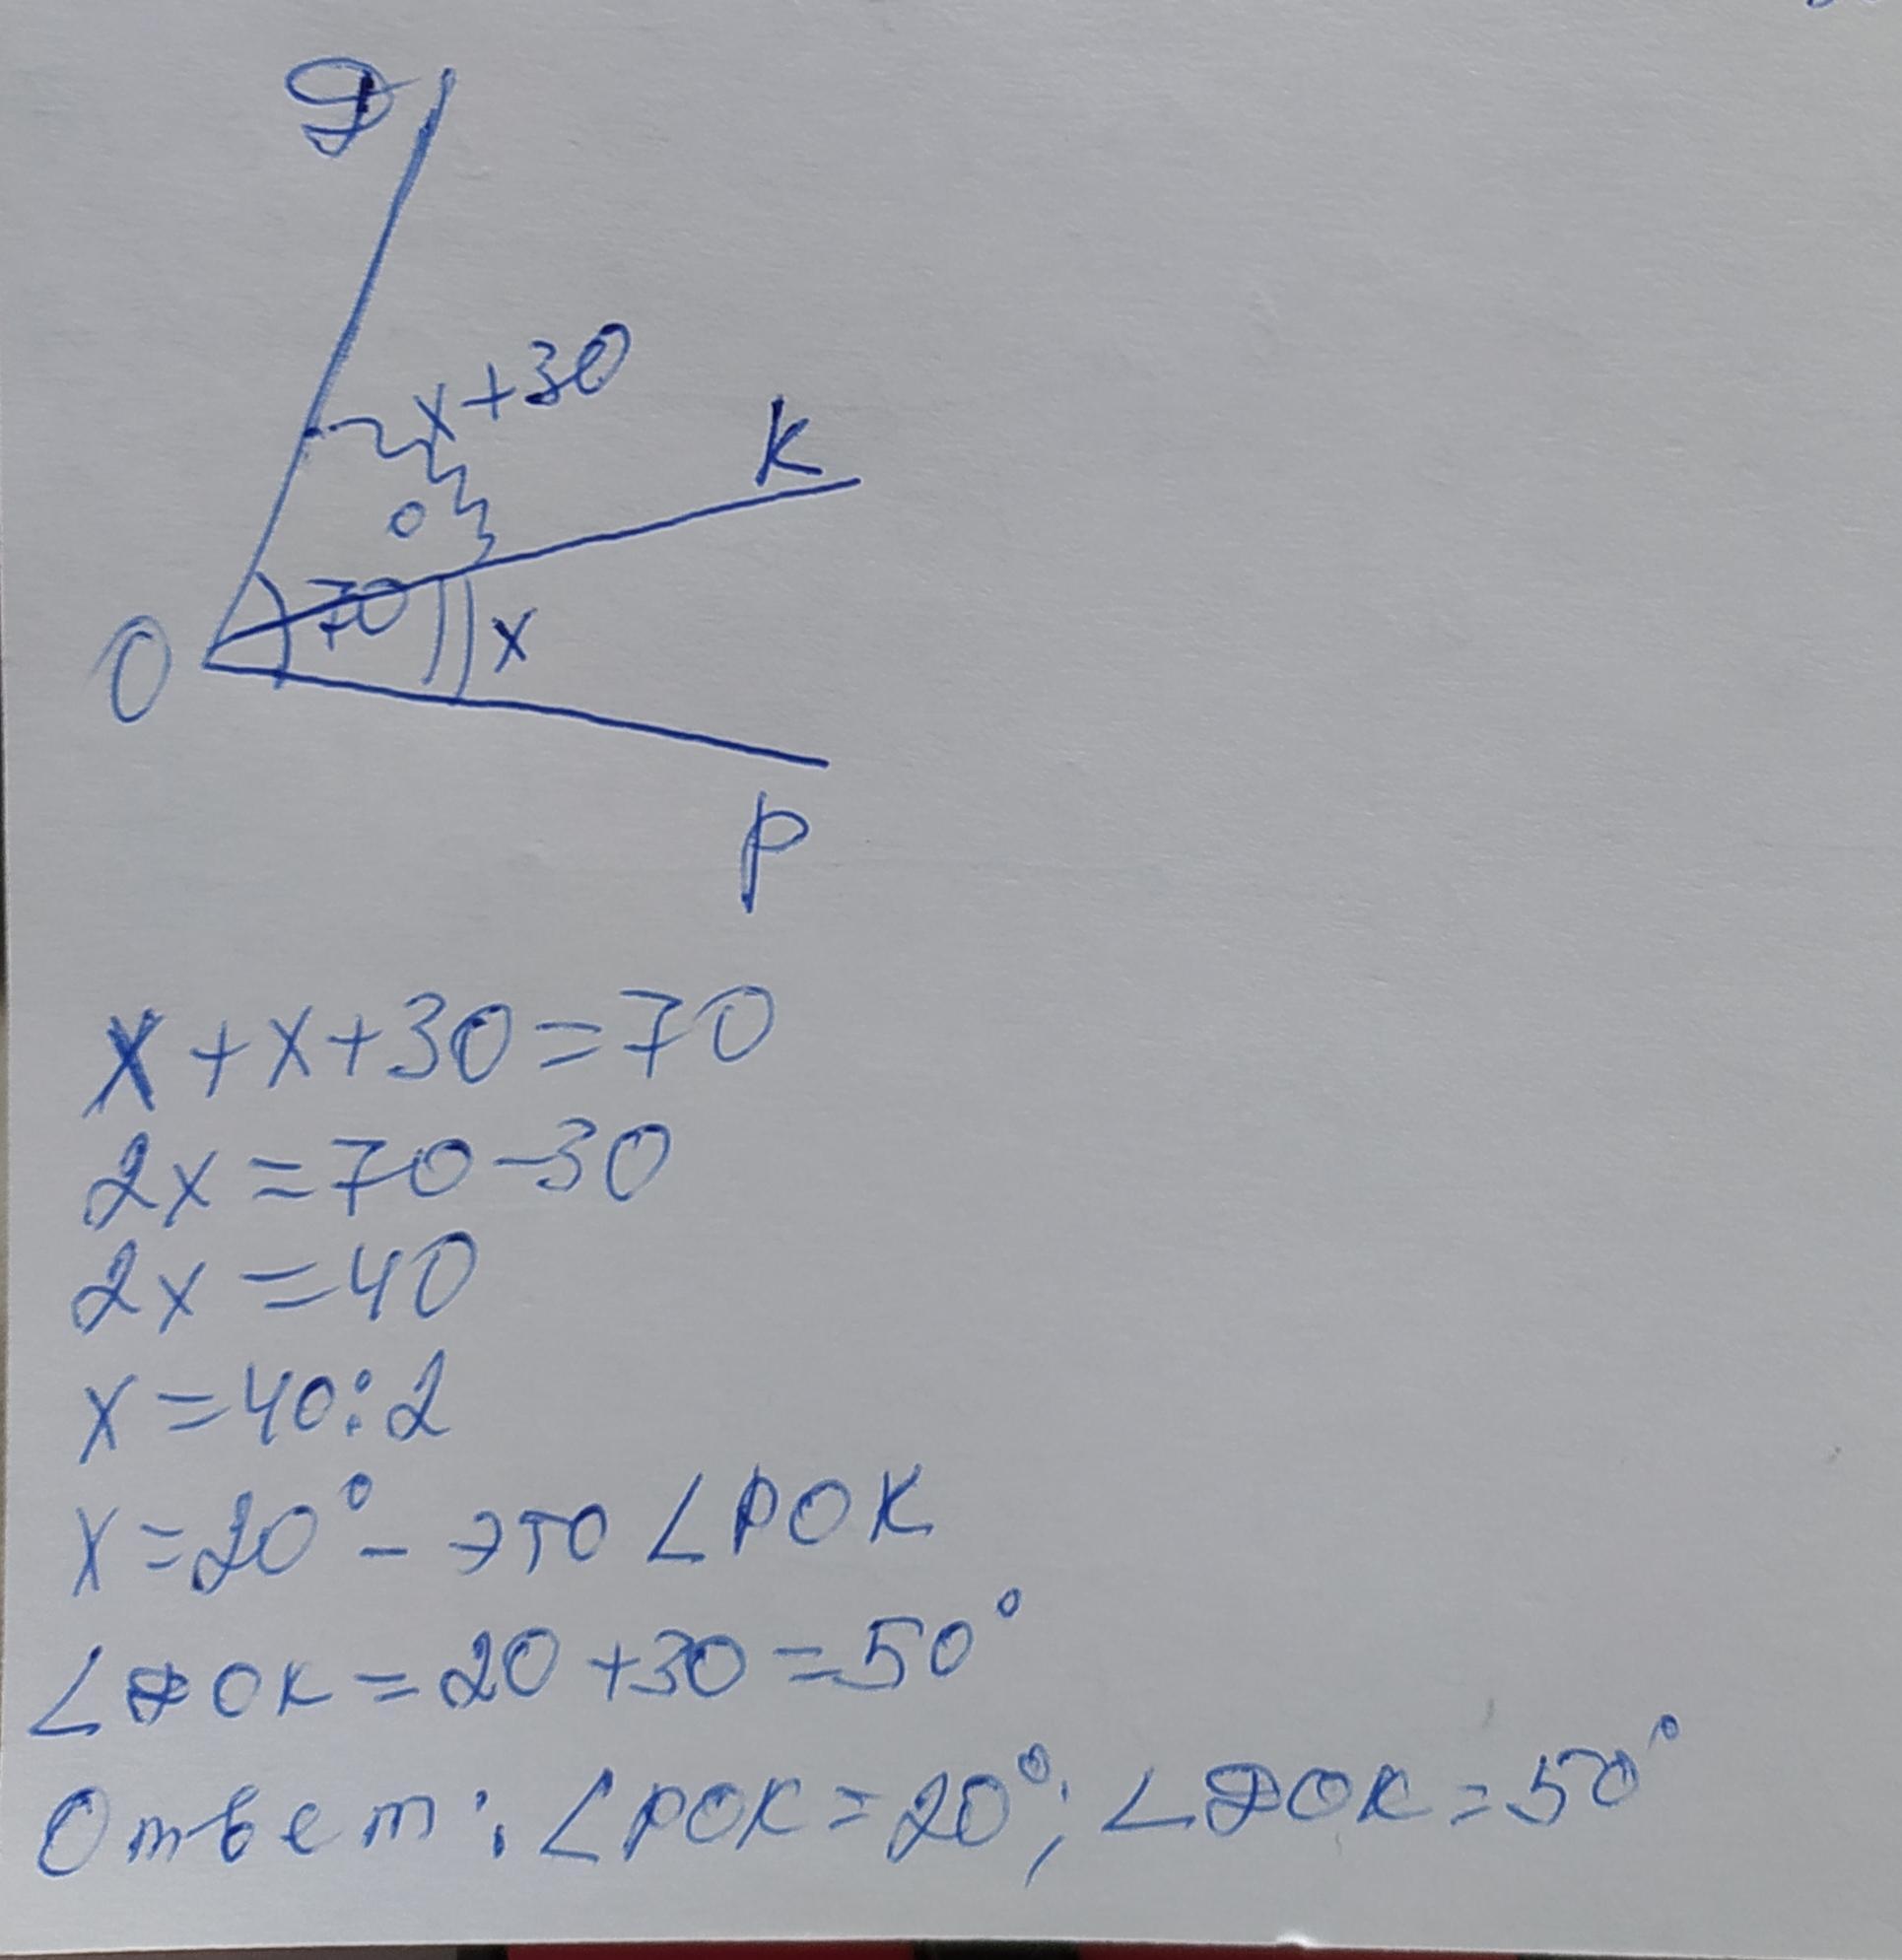 D
x+30
K
70°
O
x
P
x+x+30=70
2x=70-30
2x=40
x=40:2
x=20° - это ∠POK
∠DOK=20+30=50°
Ответ: ∠POK=20°; ∠DOK=50°